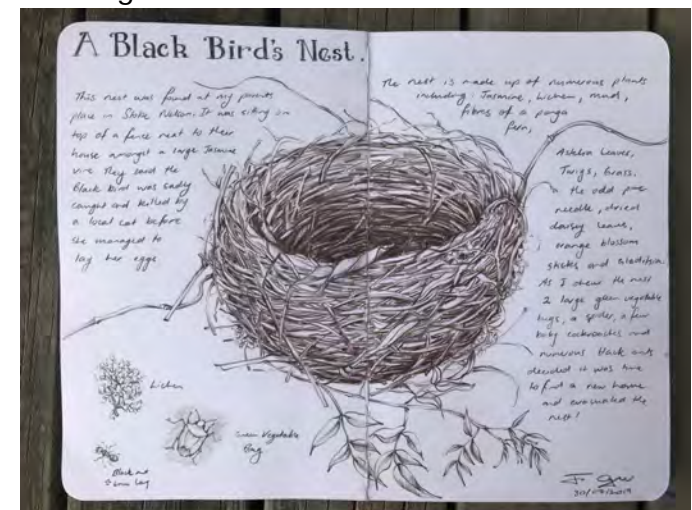 A Black Bird's Nest.
This nest was found at my parents
place in Stoke Nelson. It was sitting on
top of a fence next to their
house amongst a large Jasmine
vine. They said the
Black bird was sadly
caught and killed by
a local cat before
she managed to
lay her eggs
The nest is made up of numerous plants
including: Jasmine, Lichen, mud,
fibres of a ponga
fern,
Astelia Leaves,
Twigs, Grass,
the odd pine
needle, dried
daisy leaves,
orange blossom
sticks and
As I drew the nest
2 large green vegetable
bugs, a spider, a few
baby cockroaches and
numerous black ants
decided it was time
to find a new home
and evacuated the
nest!
Lichen
Green Vegetable
Bug
Black ant
30/03/2019